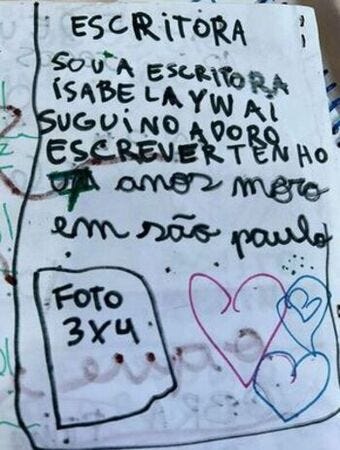 ESCRITORA
SOU A ESCRITORA
ISABELA YWAI
SUGUINO ADORO
ESCREVER TENHO
7 anos moro
em são paulo
FOTO
3X4